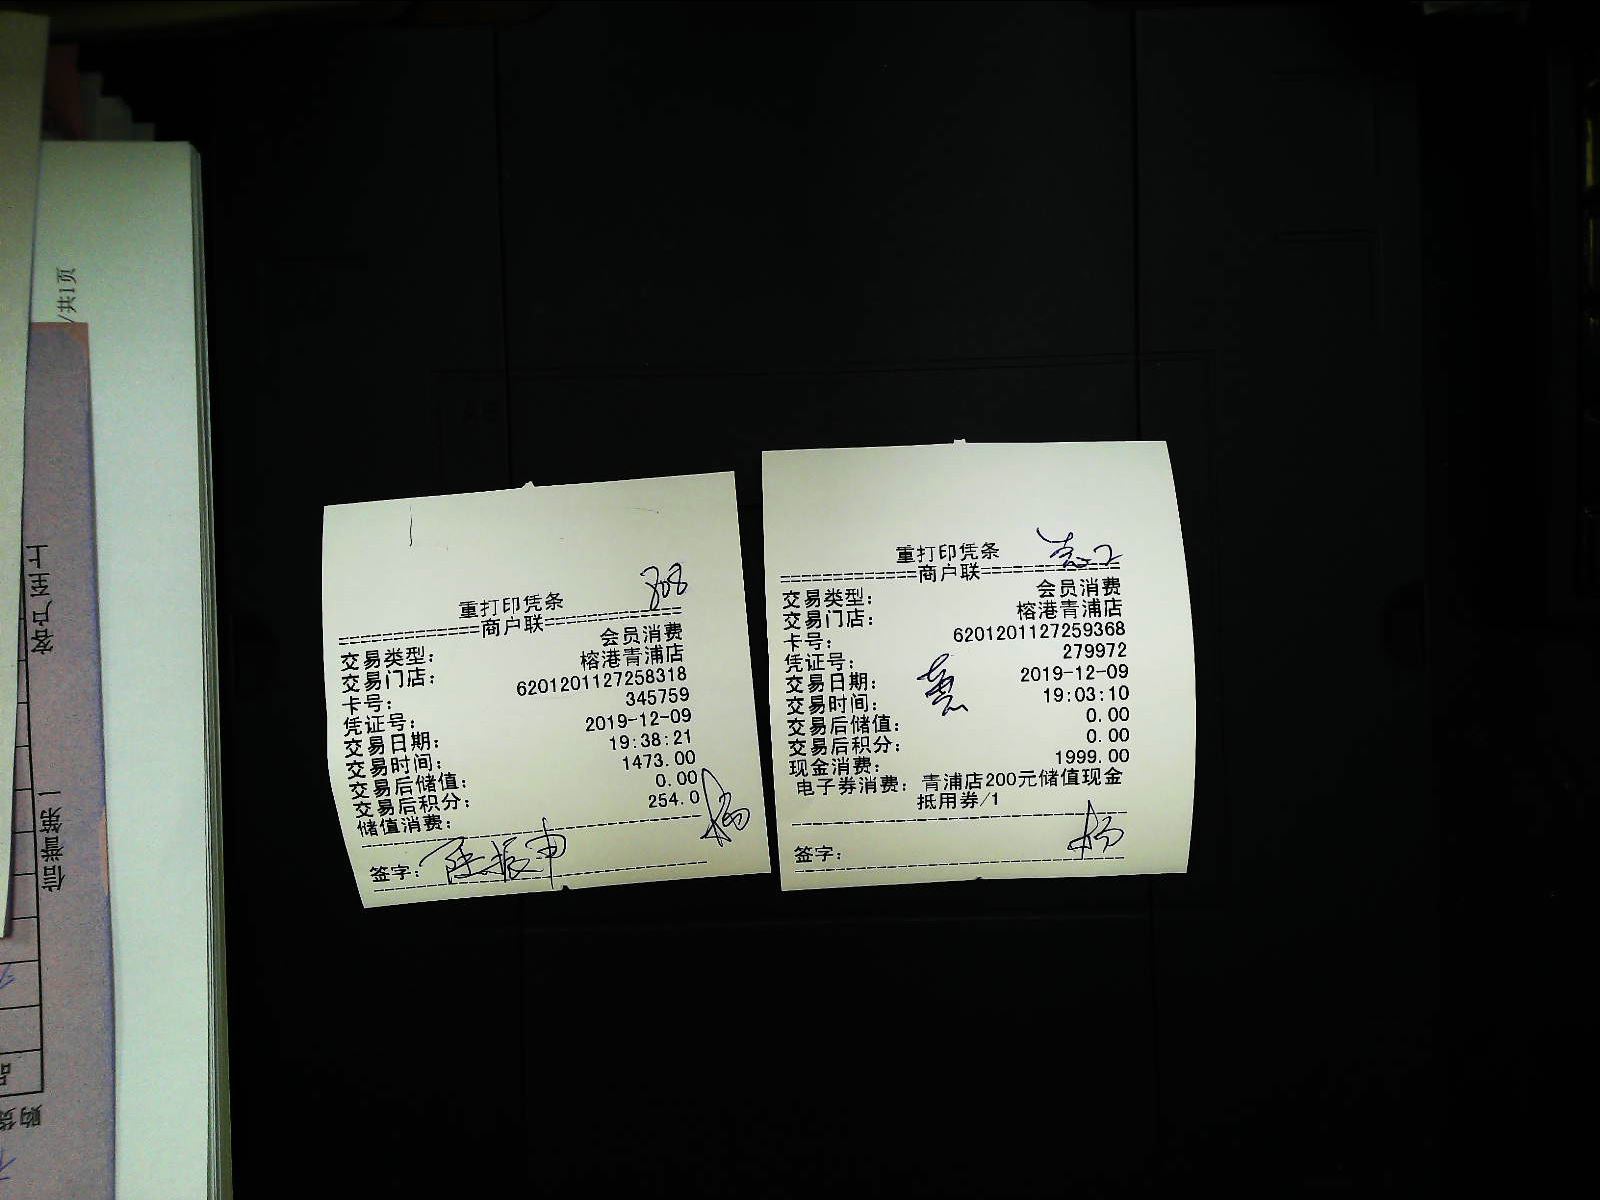 /共1页
客户至上
信誉第一
重打印凭条
808
=============商户联=============
交易类型: 会员消费
交易门店: 榕港青浦店
卡号: 6201201127258318
凭证号: 345759
交易日期: 2019-12-09
交易时间: 19:38:21
交易后储值: 1473.00
交易后积分: 0.00
储值消费: 254.0
签字: 陈振申
杨
重打印凭条
=============商户联=============
交易类型: 会员消费
交易门店: 榕港青浦店
卡号: 6201201127259368
凭证号: 279972
交易日期: 2019-12-09
交易时间: 19:03:10
交易后储值: 0.00
交易后积分: 0.00
现金消费: 1999.00
电子券消费: 青浦店200元储值现金
抵用券/1
签字:
杨